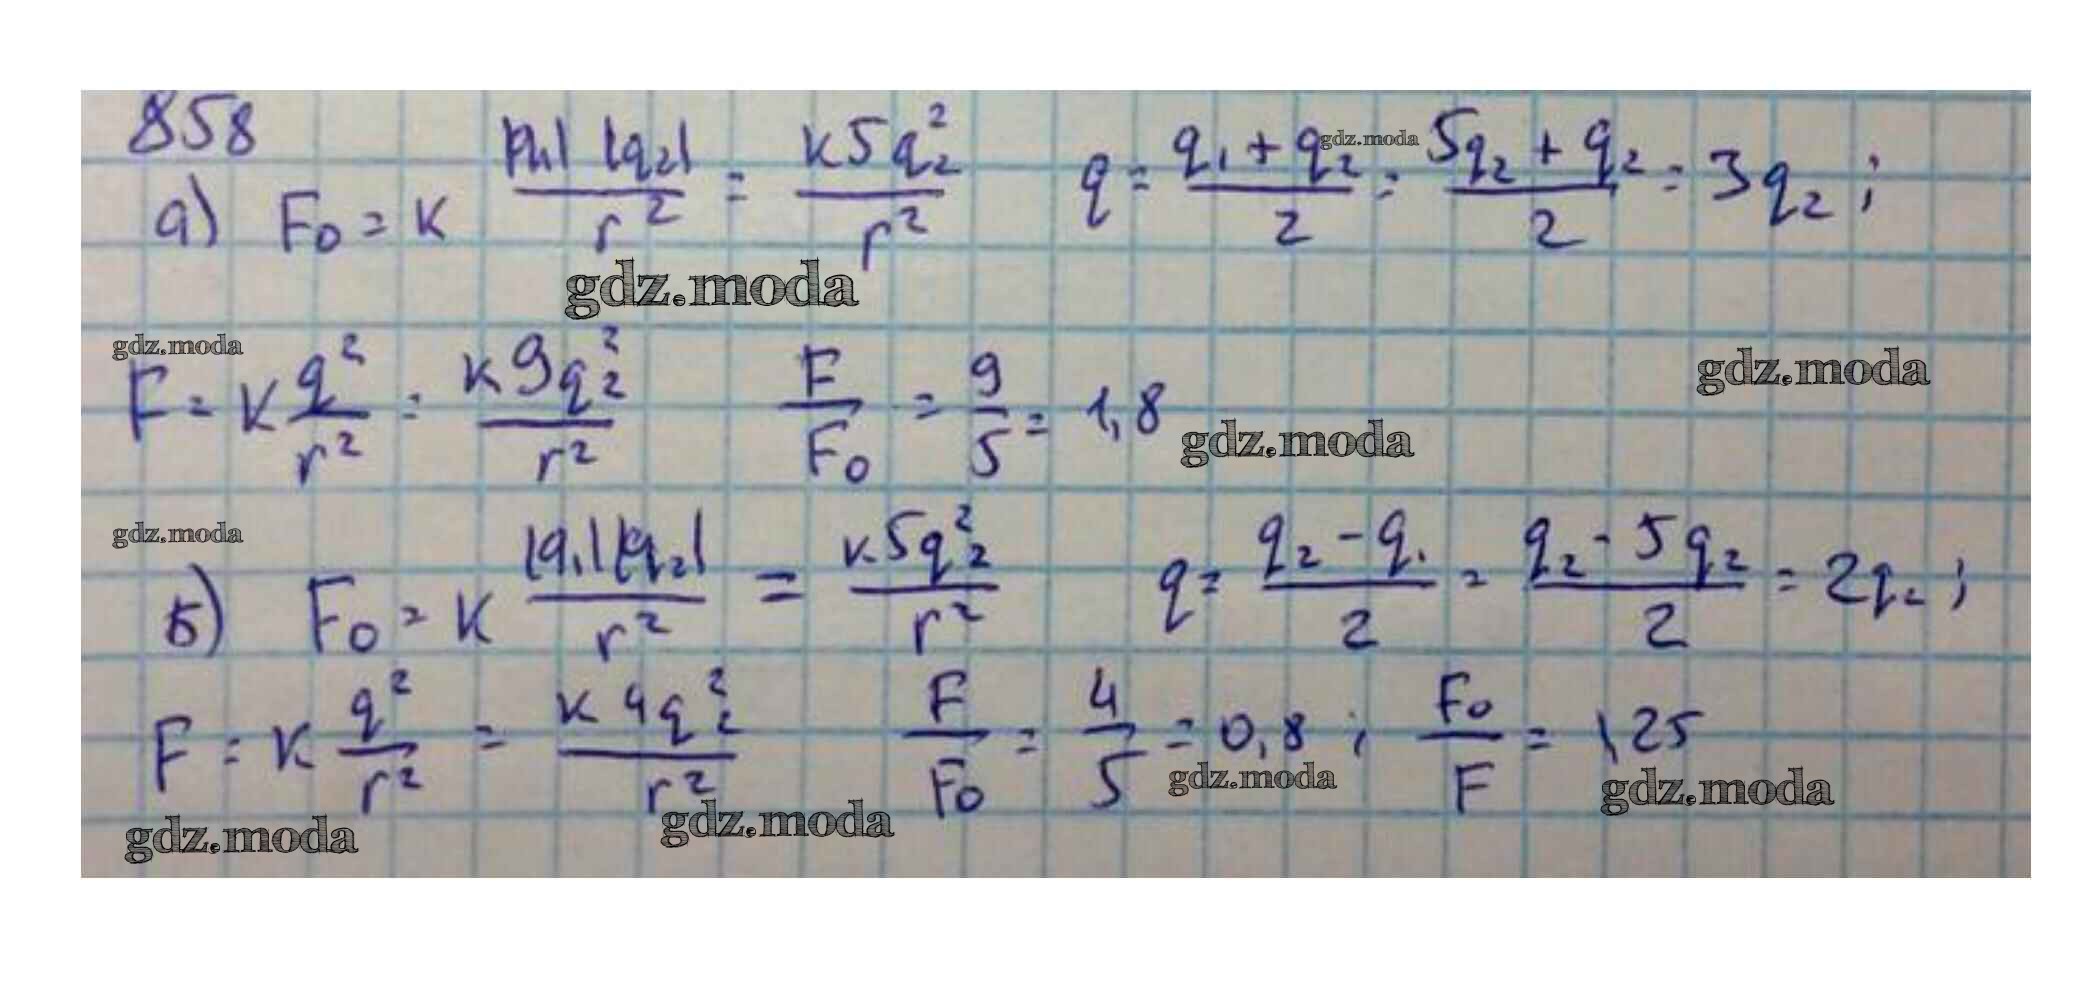 858
а) F₀ = к |q₁| |q₂| / r² = к5q₂² / r² q = (q₁ + q₂) / 2 = (5q₂ + q₂) / 2 = 3q₂ ;
gdz.moda
gdz.moda
gdz.moda
F = к q² / r² = к9q₂² / r² F / F₀ = 9 / 5 = 1,8
gdz.moda
gdz.moda
gdz.moda
б) F₀ = к |q₁||q₂| / r² = к5q₂² / r² q = (q₂ - q₁) / 2 = (q₂ - 5q₂) / 2 = 2q₂ ;
F = к q² / r² = к4q₂² / r² F / F₀ = 4 / 5 = 0,8 ; F₀ / F = 1,25
gdz.moda
gdz.moda
gdz.moda
gdz.moda